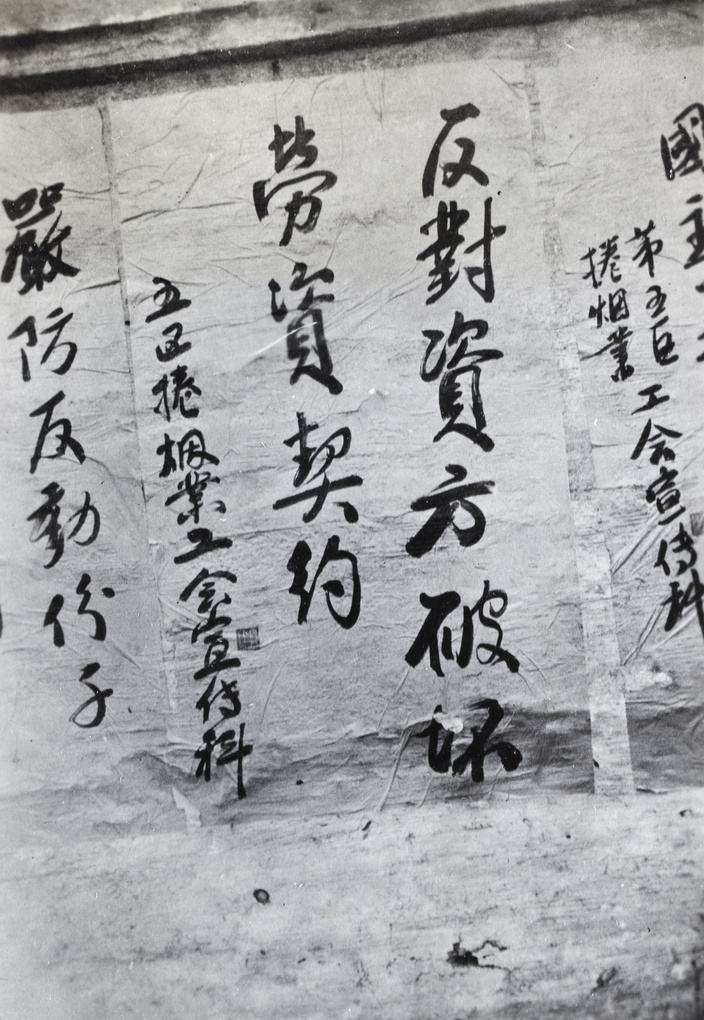 國主
第五区工会宣传科
捲烟業
反對資方破坏
勞資契約
五区捲烟業工会宣传科
嚴防反動份子